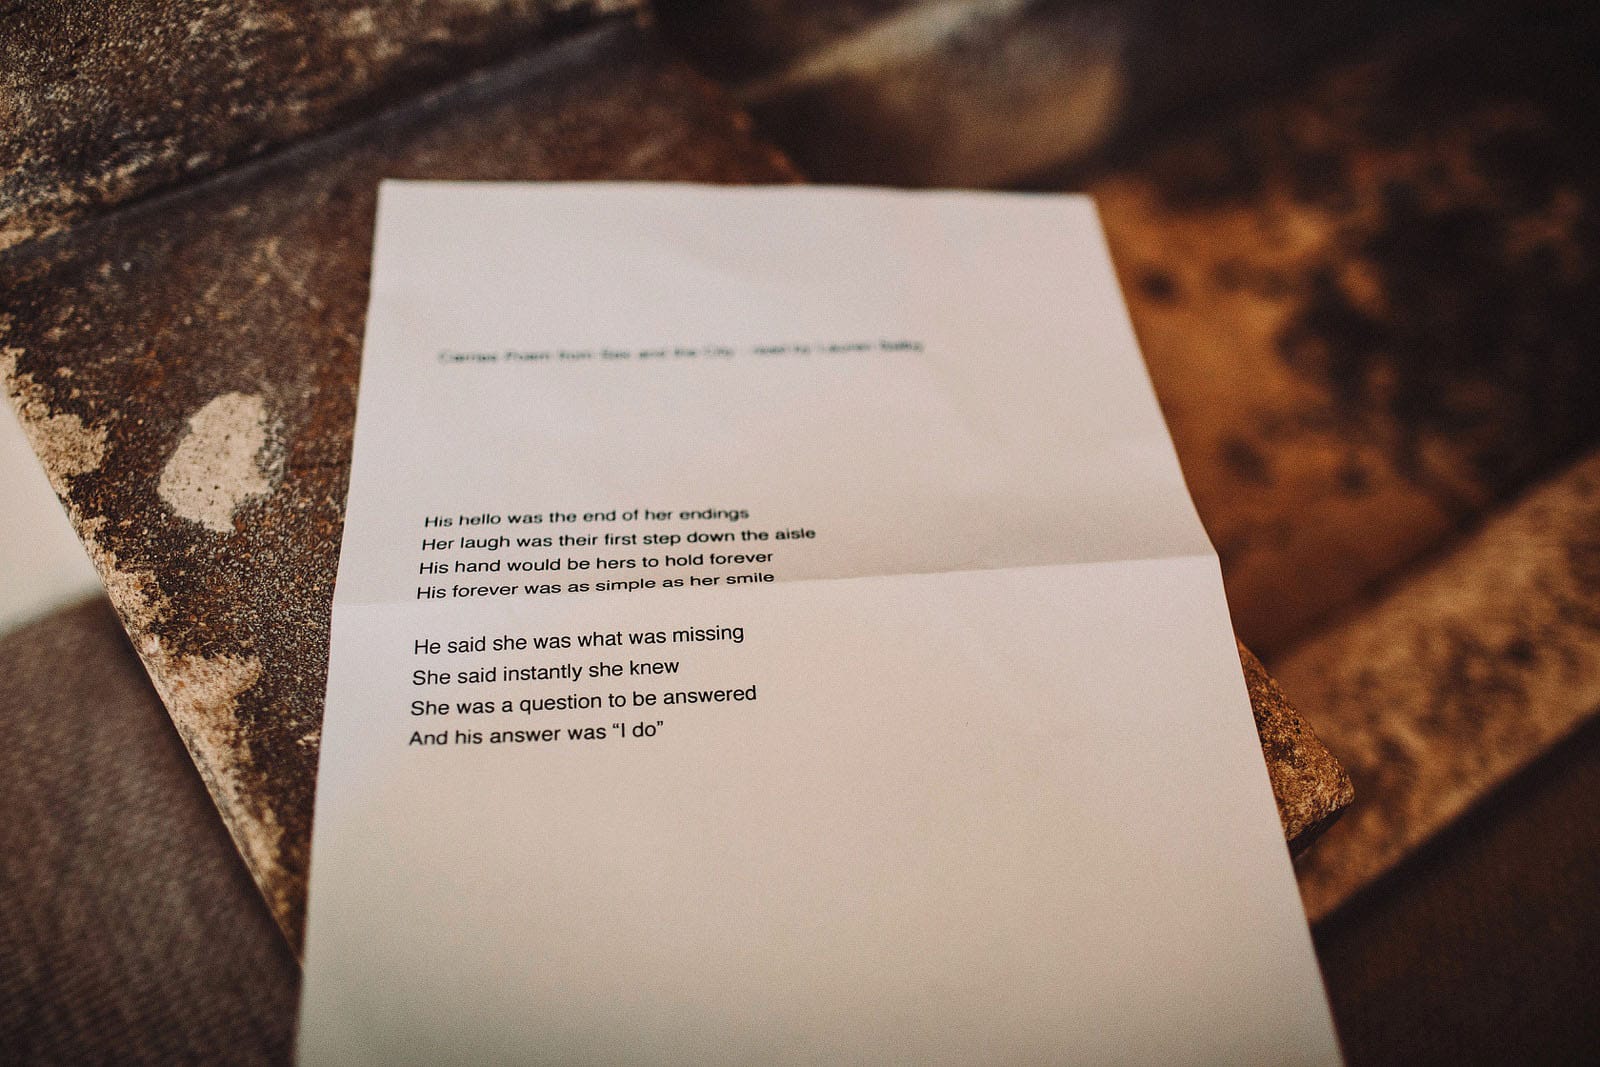 Carries Poem from Sex and the City - read by Lauren
His hello was the end of her endings
Her laugh was their first step down the aisle
His hand would be hers to hold forever
His forever was as simple as her smile
He said she was what was missing
She said instantly she knew
She was a question to be answered
And his answer was “I do”